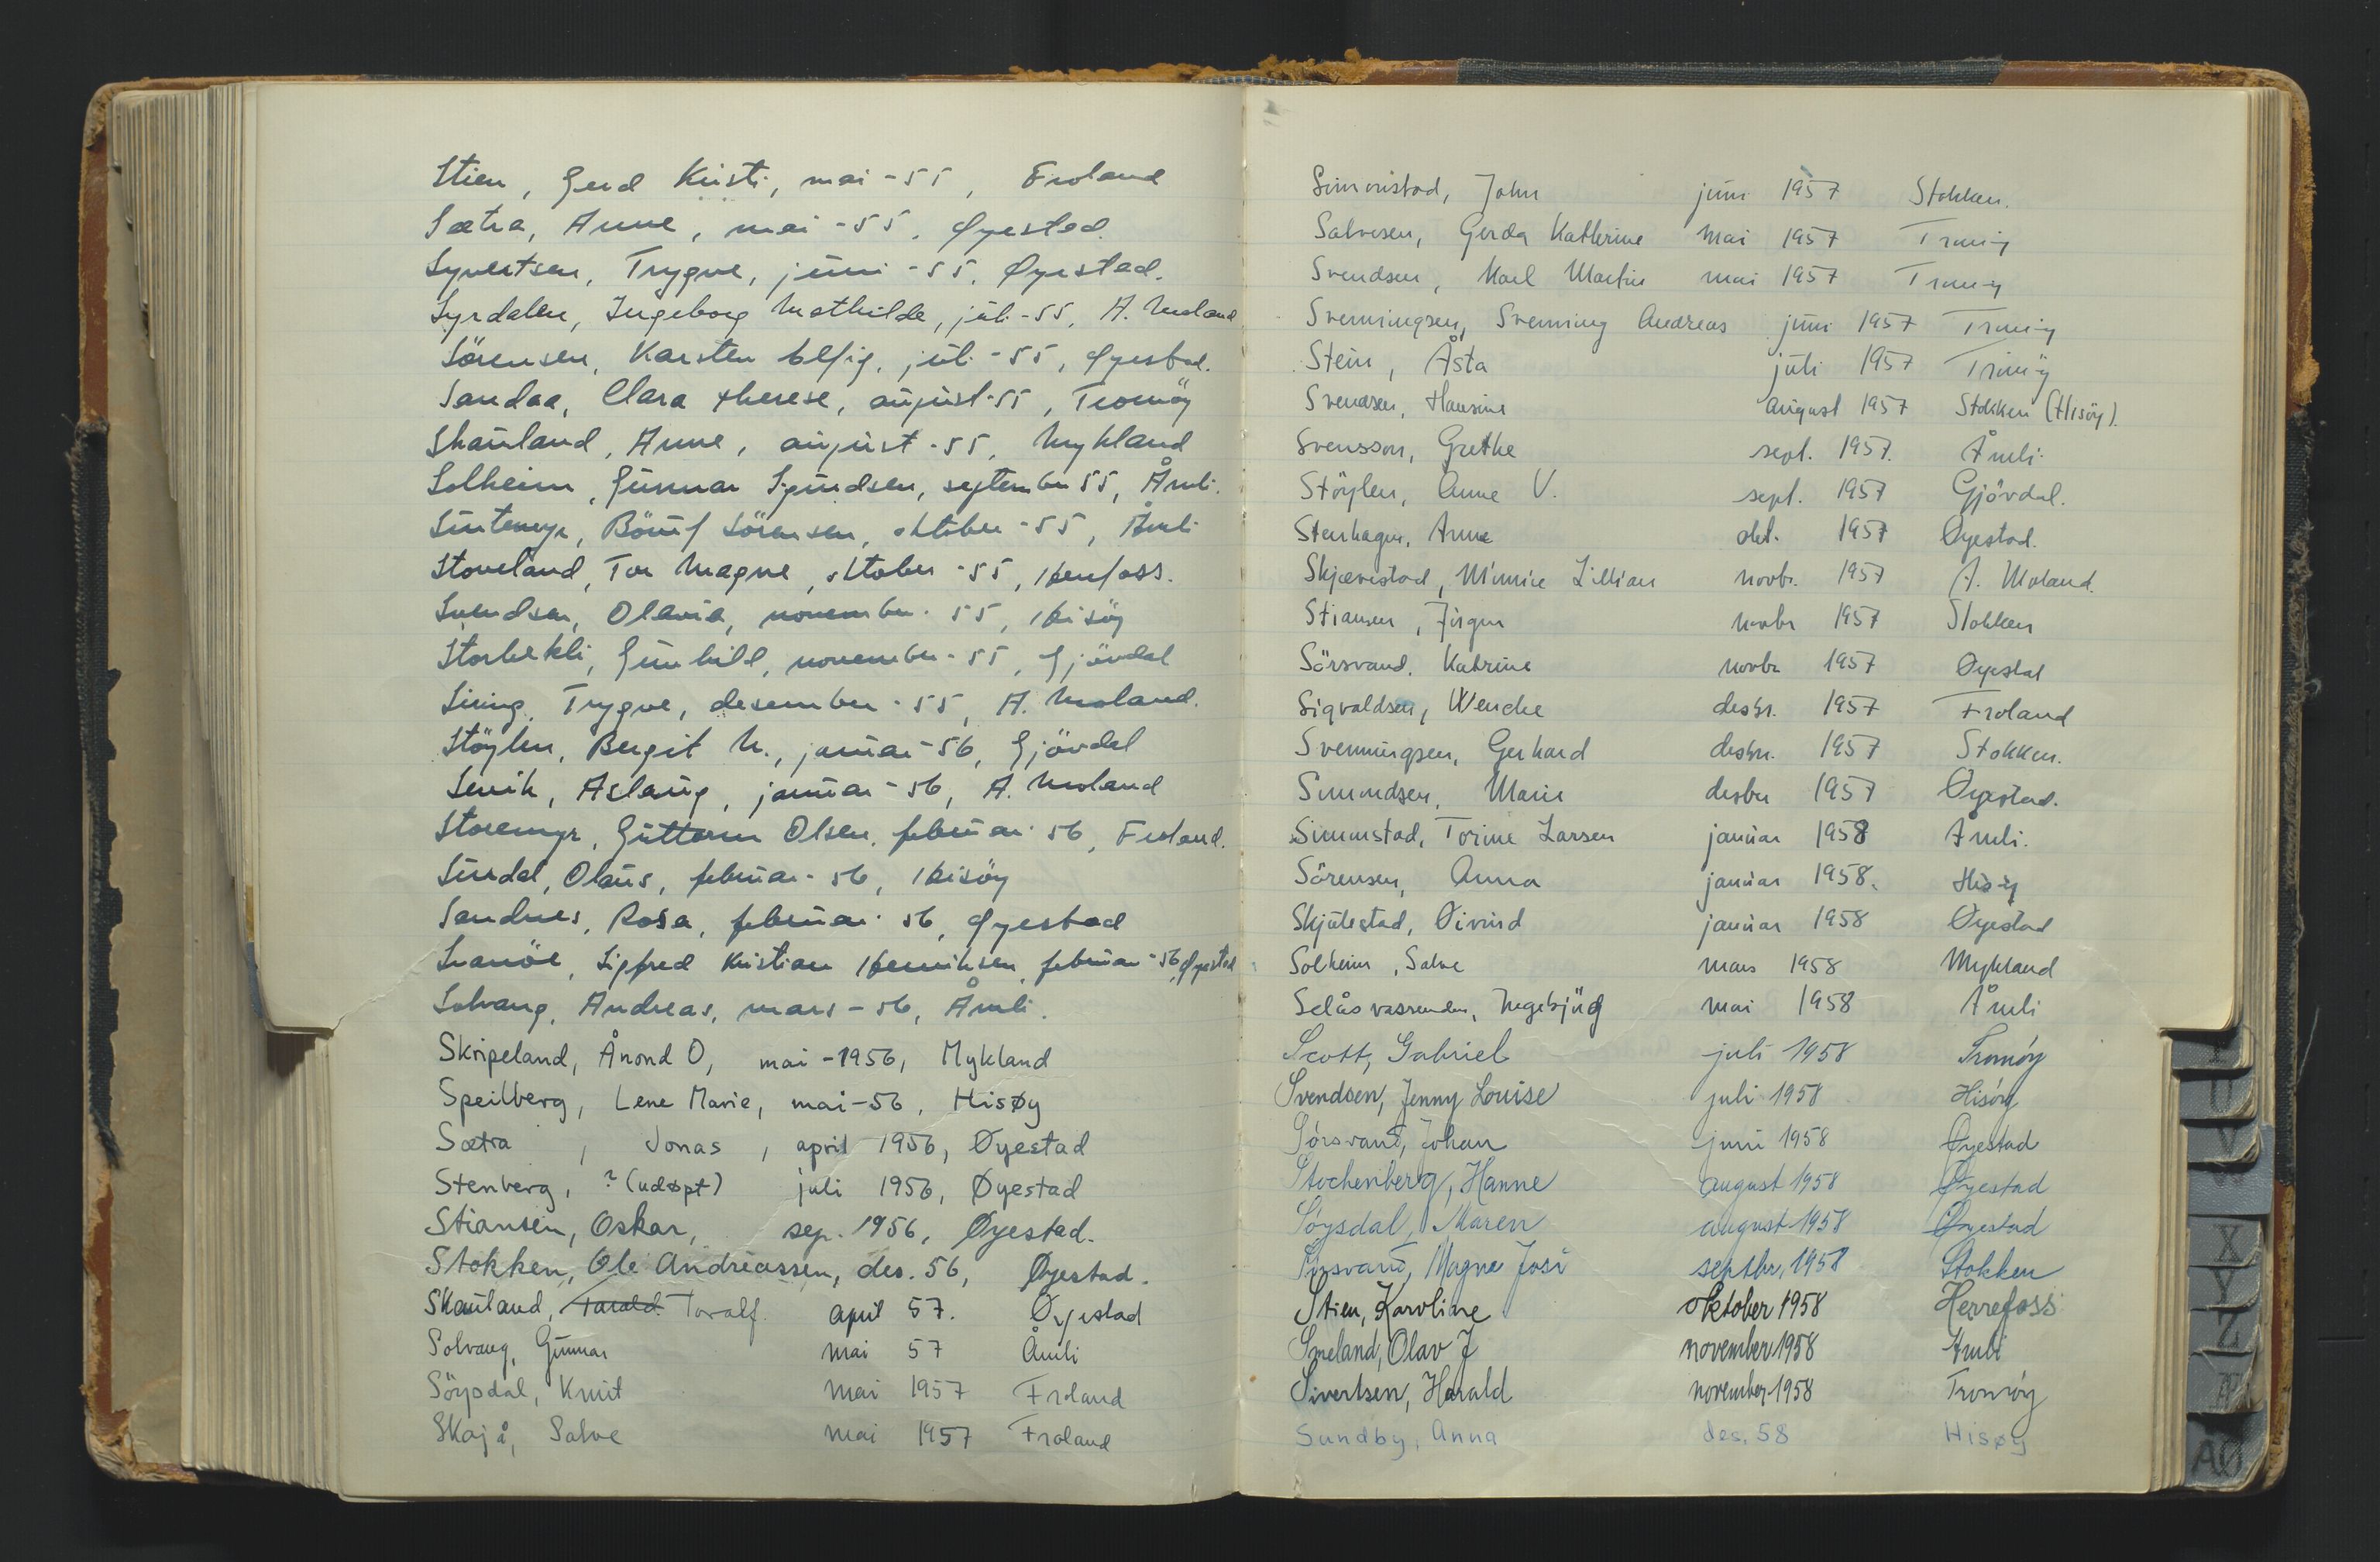 Stien, Gerd Kristi, mai - 55, Froland
Sætra, Anne, mai - 55, Øyestad.
Syvertsen, Trygve, juni - 55, Øyestad.
Syrdalen, Ingeborg Mathilde, juli - 55, A. Moland
Sörensen, Karsten Elfig, juli - 55, Øyestad.
Sandaa, Clara Therese, august - 55, Tromöy
Skauland, Anne, august - 55, Mykland
Solheim, Gunnar Sjundsen, september 55, Åmli.
Sörensen, oktober - 55, Åmli
Stoveland, Tor Magne, oktober - 55, Herefoss.
Svendsen, Olavia, november - 55, Hisöy
Storbekli, Gunhild, november - 55, Gjövdal
Siring, Trygve, desember - 55, A. Moland.
Stöylen, Bergit M., januar - 56, Gjövdal
Senik, Aslaug, januar - 56, A. Moland
Storemyr, Guttorm Olsen, februar 56, Froland.
Surdal, Olaus, februar - 56, Hisöy
Sandnes, Rosa, februar 56, Øyestad
Sigfred Kristian Henriksen, februar - 56, Øyestad
Solvang, Andreas, mars - 56, Åmli.
Skripeland, Ånond O, mai - 1956, Mykland
Speilberg, Lene Marie, mai - 56, Hisøy
Sætra, Jonas, april 1956, Øyestad
Stenberg, ? (udøpt) juli 1956, Øyestad
Stiansen, Oskar, sep. 1956, Øyestad.
Stokken, Ole Andreassen, des. 56, Øyestad.
Skauland, Tarald Toralf. april 57. Øyestad
Solvang, Gunnar mai 57 Åmli
Söysdal, Knut mai 1957 Froland
Skajå, Salve mai 1957 Froland
Simonstad, John juni 1957 Stokken.
Salvesen, Gerda Kathrine mai 1957 Tromöy
Svendsen, Karl Martin mai 1957 Tromöy
Svenningsen, Svenning Andreas juni 1957 Tromöy
Stein, Åsta juli 1957 Tromöy
Svendsen, Hansine august 1957 Stokken (Hisöy).
Svensson, Grethe sept. 1957. Åmli.
Stöylen, Anne V. sept. 1957 Gjövdal.
Stenhagen, Anna okt. 1957 Øyestad.
Skjævestad, Minnie Lillian novbr. 1957 A. Moland.
Stiansen, Jörgen novbr 1957 Stokken
Sörsvand, Katrine novbr 1957 Øyestad
Sigvaldsen, Wenche desbr. 1957 Froland
Svenningsen, Gerhard desbr. 1957 Stokken.
Simondsen, Marie desbr 1957 Øyestad.
Simonstad, Torine Larsen januar 1958 Åmli.
Sörensen, Anna januar 1958. Hisöy
Skjulestad, Øivind januar 1958 Øyestad
Solheim, Salve mars 1958 Mykland
Selåsvassenden, Ingebjörg mai 1958 Åmli
Scott, Gabriel juli 1958 Tromöy
Svendsen, Jenny Louise juli 1958 Hisöy
Sörsvand, Johan juni 1958 Øyestad
Stochenberg, Hanne august 1958 Øyestad
Söysdal, Maren august 1958 Øyestad
Sörsvand, Magne José septbr, 1958 Stokken
Stien, Karoline oktober 1958 Herrefoss
Smeland, Olav J november 1958 Åmli
Sivertsen, Harald november 1958 Tromöy
Sundby, Anna des. 58 Hisøy
U
V
X
Y
Z
Æ
ÅØ